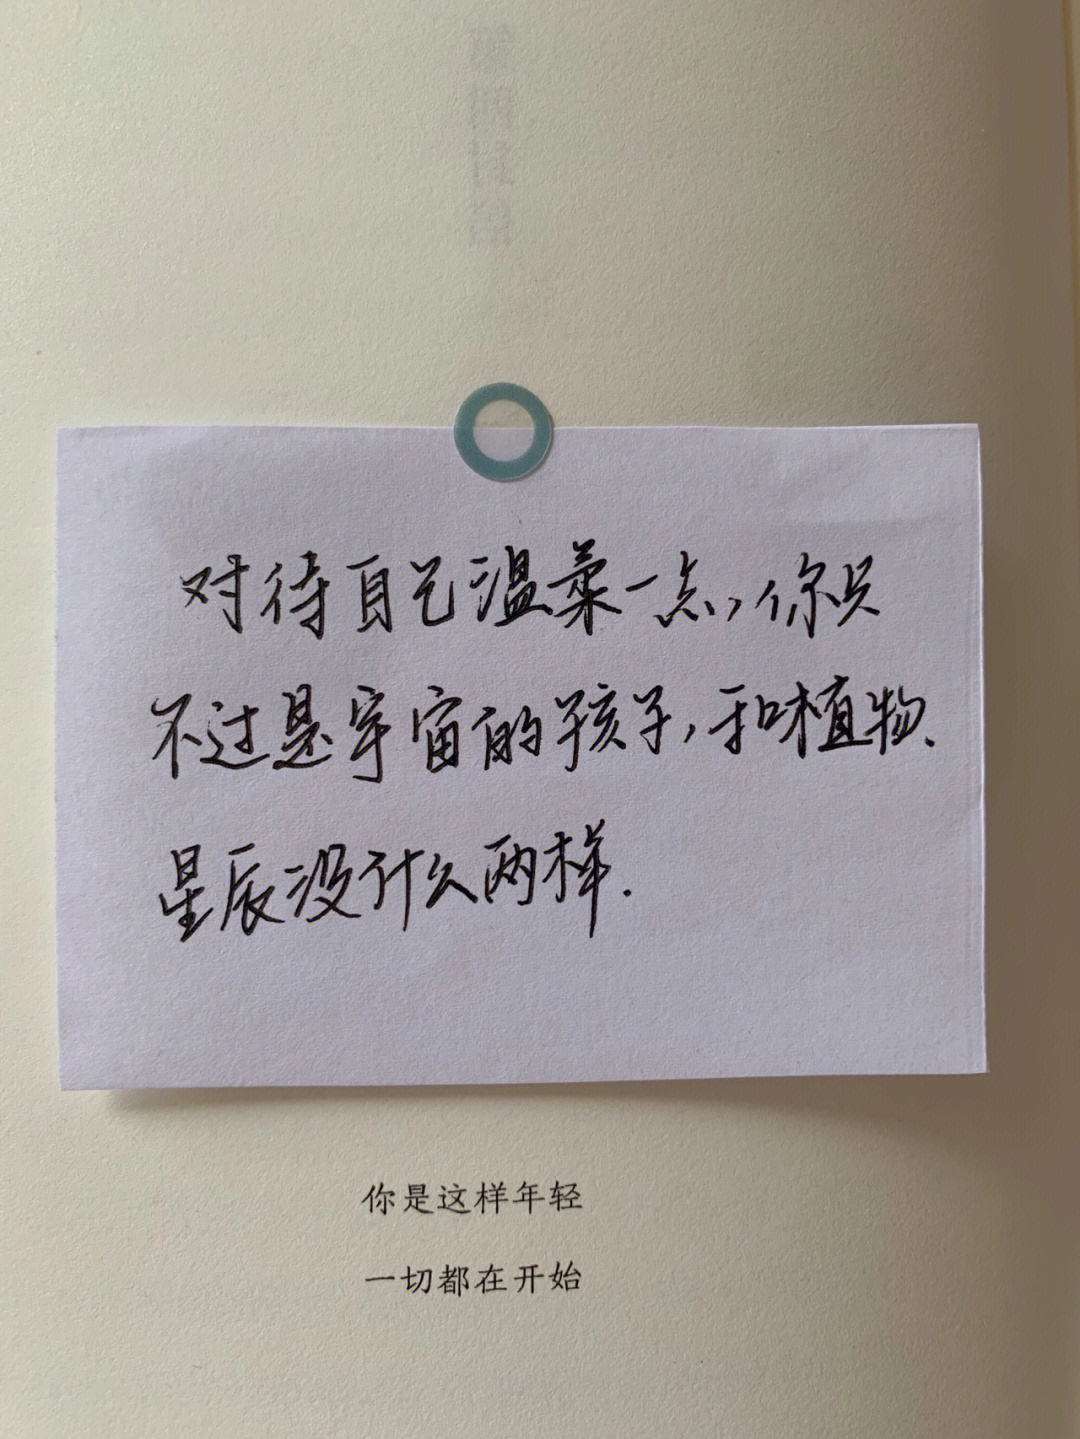 对待自己温柔一点,你只
不过是宇宙的孩子,和植物、
星辰没什么两样.
你是这样年轻
一切都在开始